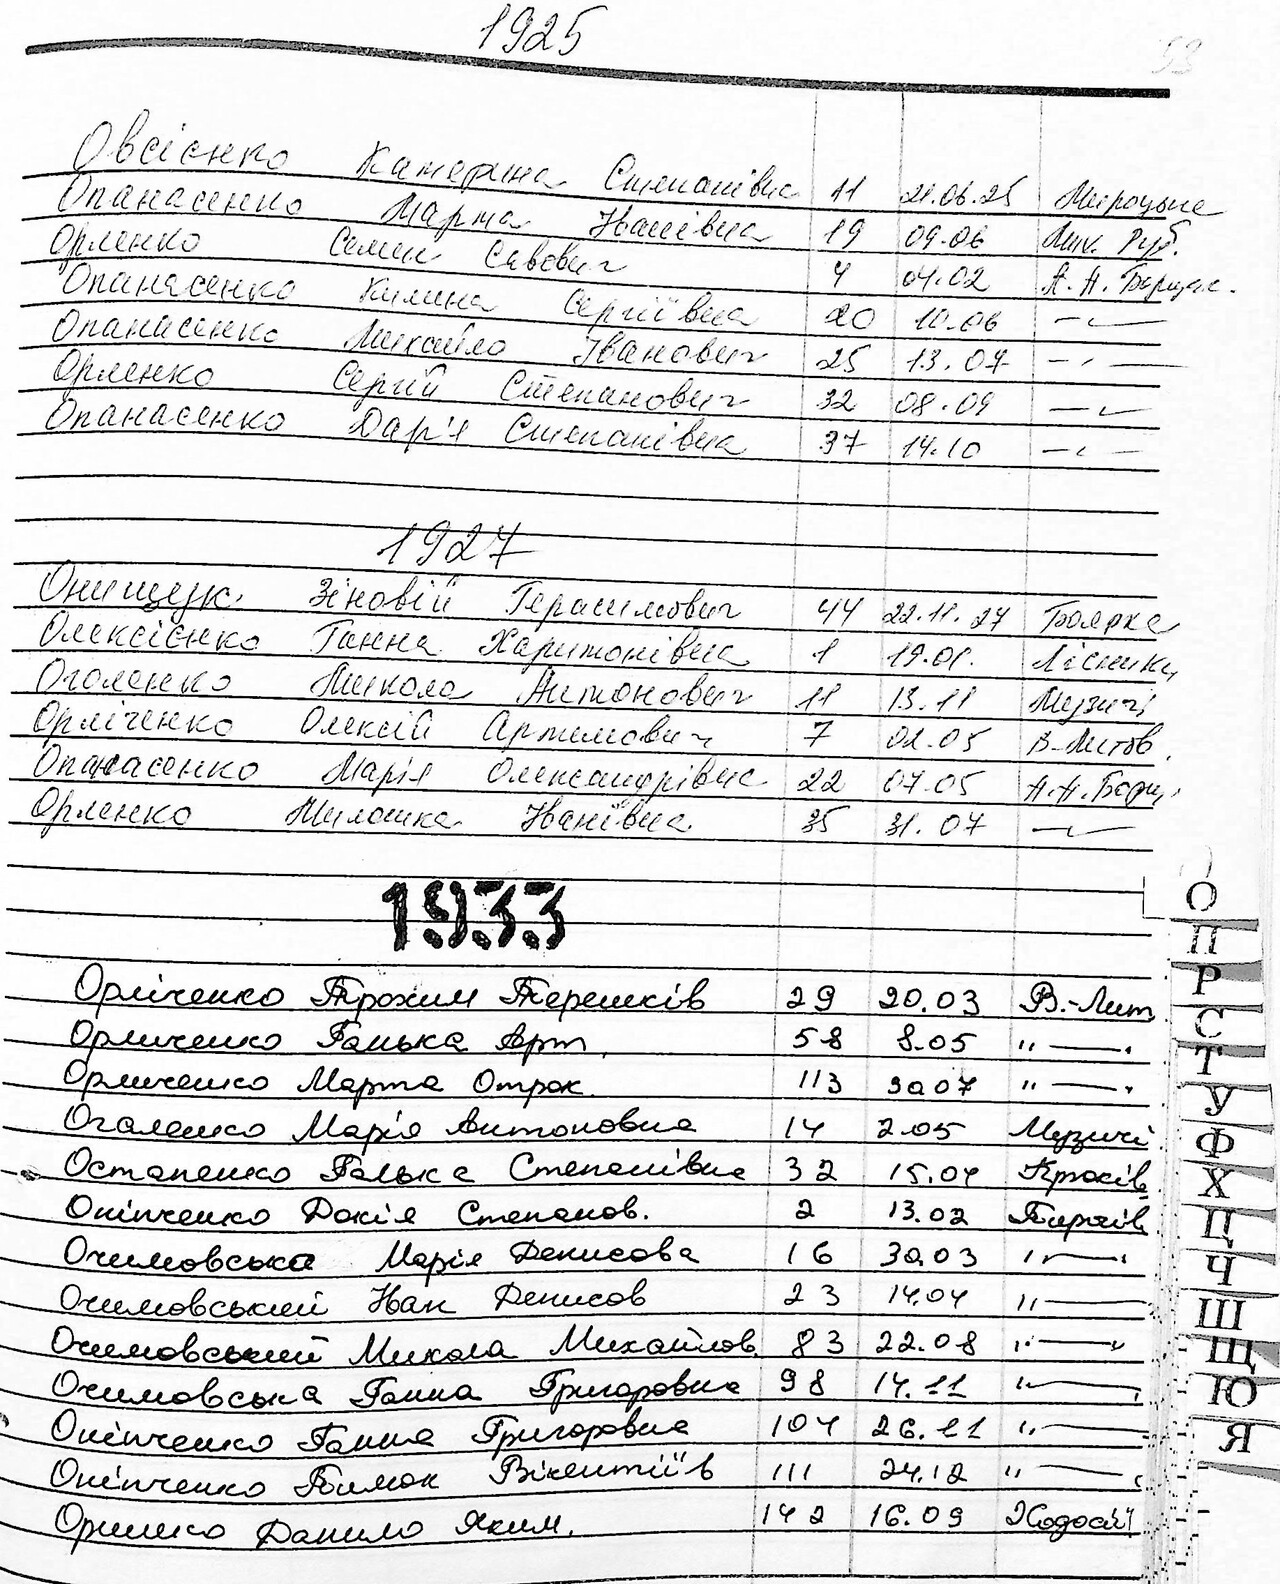 1925
53
Овсієнко Катерина Степанівна 11 21.06.25 Мироцьке
Опанасенко Марта Іванівна 19 09.06 Мик. Руб.
Орленко Семен Савович 4 04.02 А.А. Борщаг.
Опанасенко Килина Сергіївна 20 10.06 —"—
Опанасенко Михайло Іванович 25 13.07 —"—
Орленко Сергій Степанович 32 08.09 —"—
Опанасенко Дар'я Степанівна 37 14.10 —"—
1927
Онищук Зіновій Герасимович 44 22.11.27 Боярка
Олексієнко Ганна Харитонівна 1 19.01. Лісники
Оголенко Микола Антонович 11 13.11 Музичі
Орліченко Олексій Артемович 7 02.05 В-Литов.
Опанасенко Марія Олександрівна 22 07.05 А.А. Борщ.
Орленко Милашка Іванівна 35 31.07 —"—
1933
Орліченко Трохим Терешків 29 20.03 В.-Лит
Орличенко Ганька Арт. 58 8.05 "—
Орличенко Марта Отрок. 113 30.07 "—
Огаленко Марія Антоновна 14 2.05 Музичі
Остапенко Галька Степанівна 32 15.04 Крюків
Оніпченко Докія Степанов. 2 13.02 Гирчів
Очимовська Марія Денисова 16 30.03 "—
Очимовський Іван Денисов 23 14.04 "—
Очимовський Микола Михайлов. 83 22.08 "—
Очимовська Ганна Григоровна 98 14.11 "—
Оніпченко Ганна Григоровна 104 26.11 "—
Оніпченко Тимок Вікентіїв 111 24.12 "—
Оришко Данило Яким. 142 16.09 Ходосії
О
П
Р
С
Т
У
Ф
Х
Ц
Ч
Ш
Щ
Ю
Я